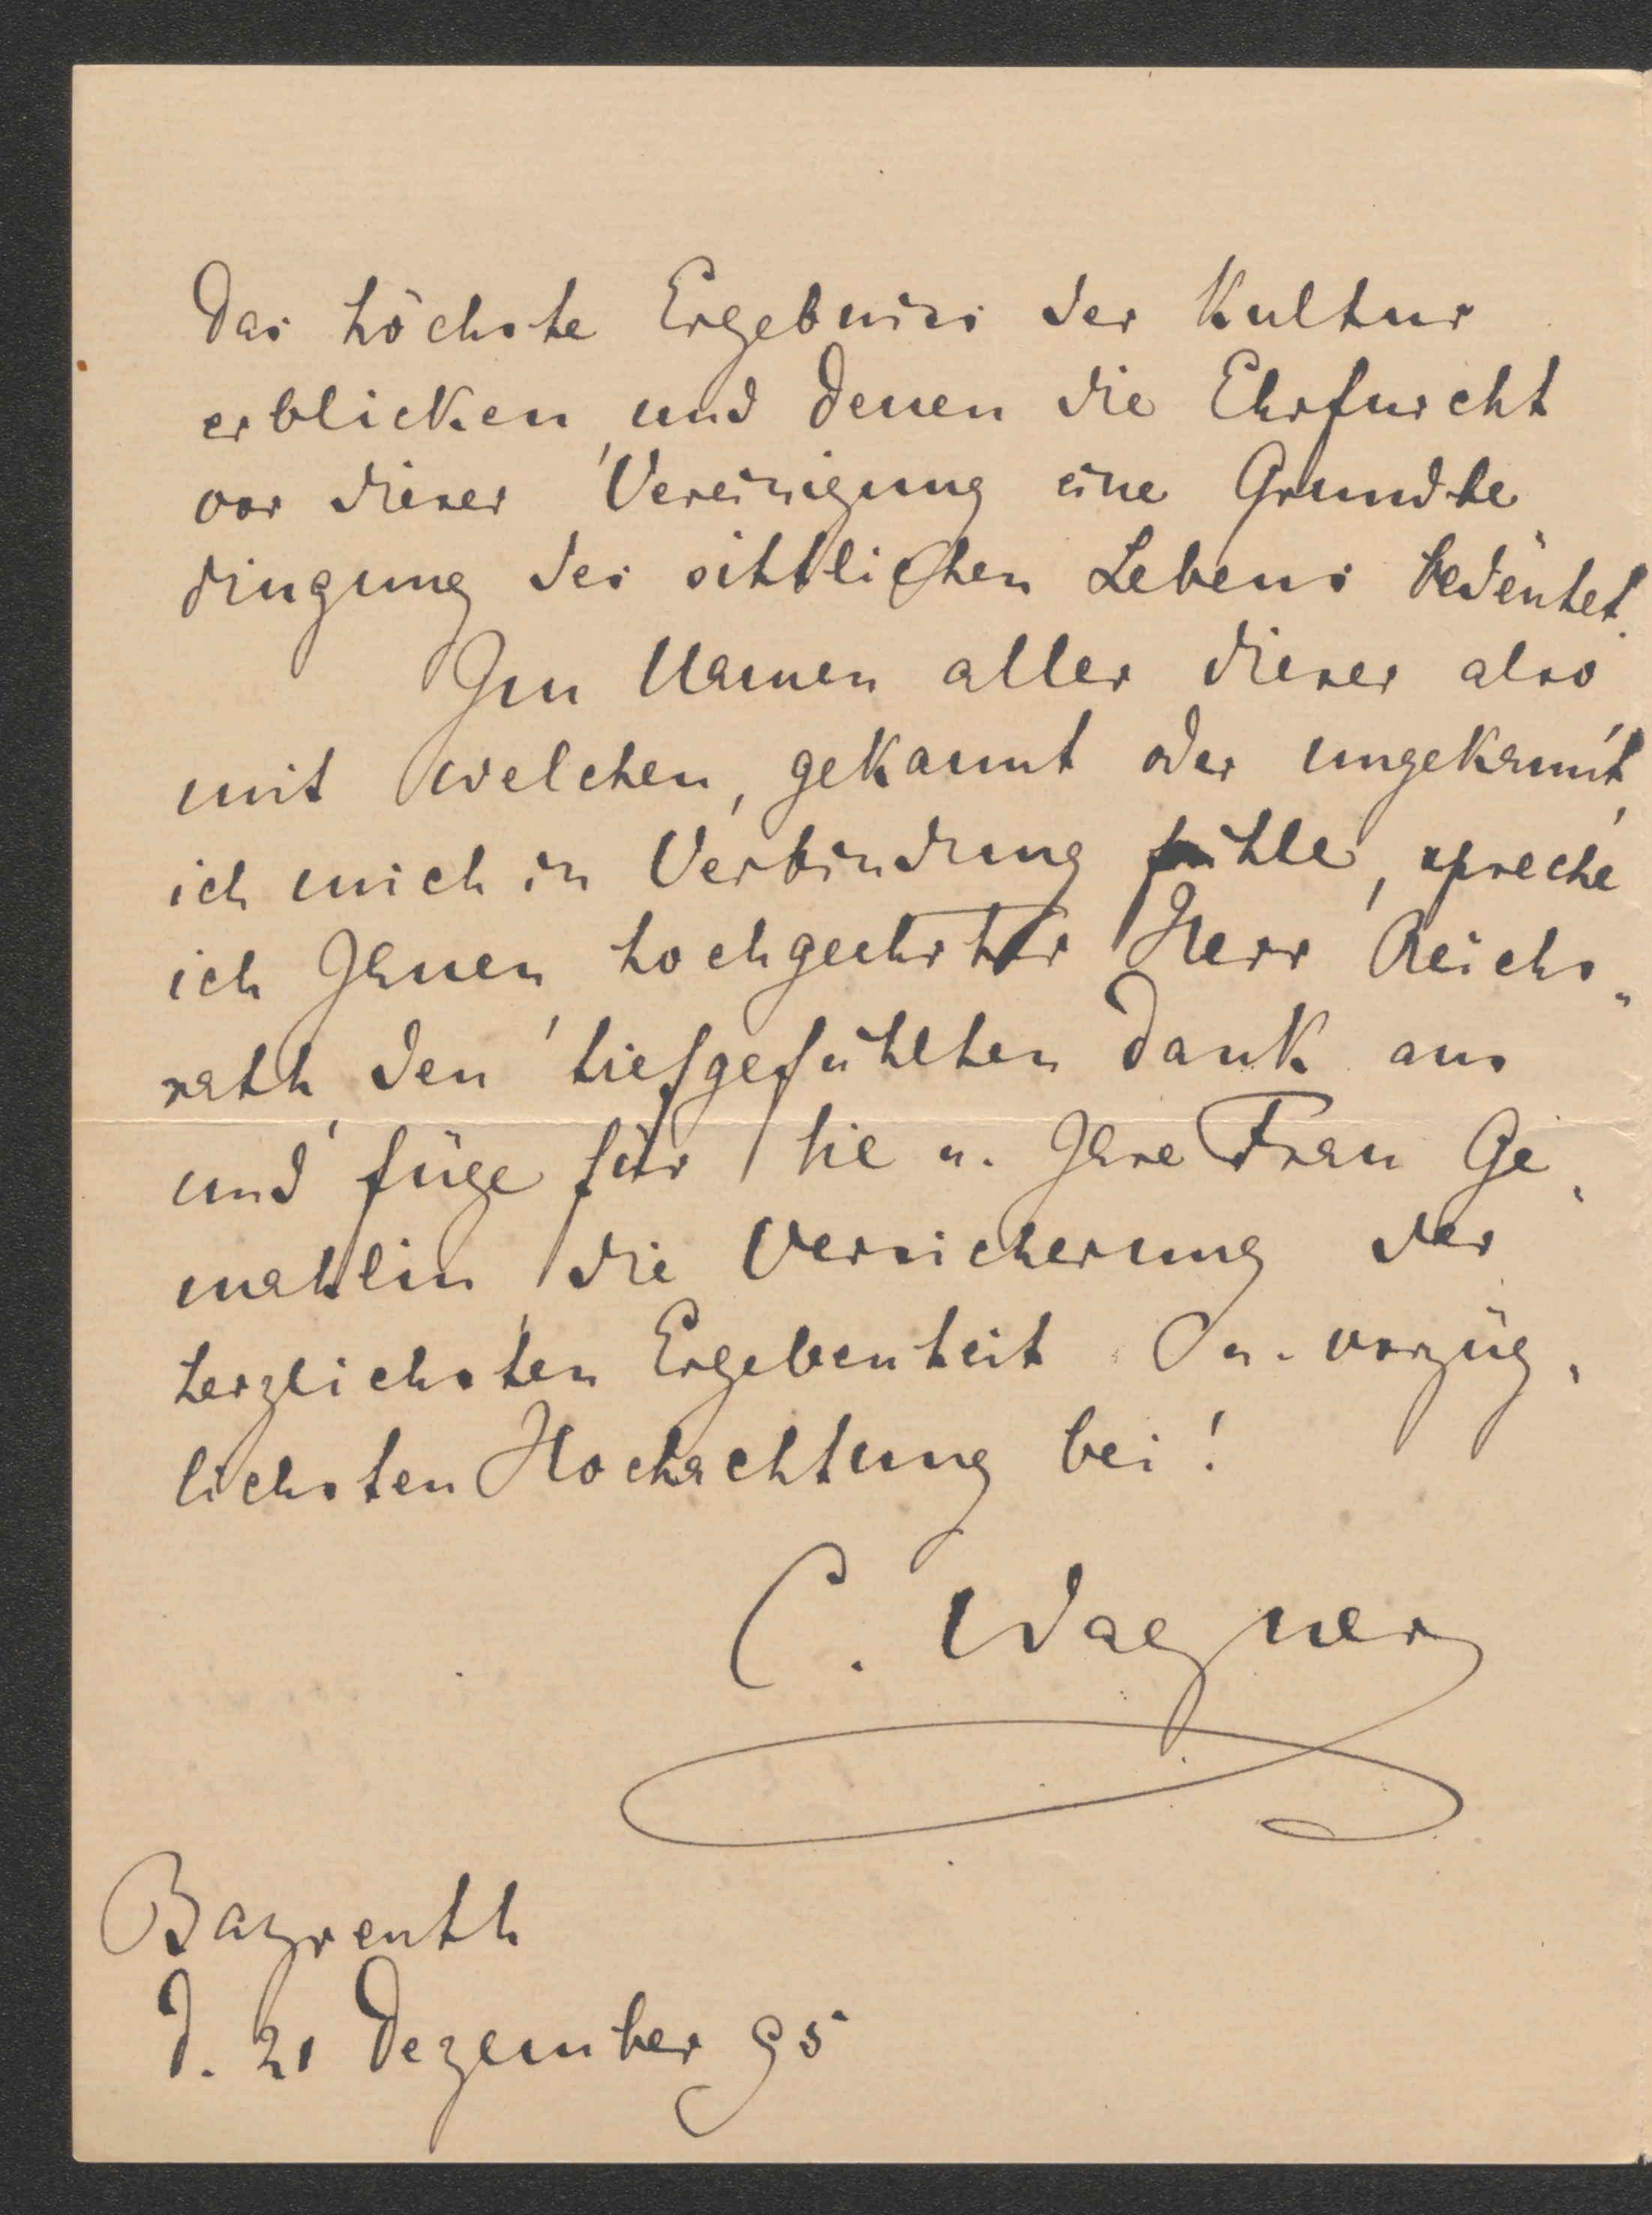 das höchste Ergebniss der Kultur
erblicken, und denen die Ehrfurcht
vor dieser Vereinigung eine Grundbe
dingung des sittlichen Lebens bedeutet.
Im Namen aller dieser also
mit welchen, gekannt oder ungekannt,
ich mich in Verbindung fühle, spreche
ich Ihnen, hochgeehrter Herr Reichs„
rath, den tiefgefühlten Dank aus
und füge für Sie u. Ihre Frau Ge„
mahlin die Versicherung der
herzlichsten Ergebenheit u. vorzüg„
lichsten Hochachtung bei!
C. Wagner
Bayreuth
d. 21 Dezember 95